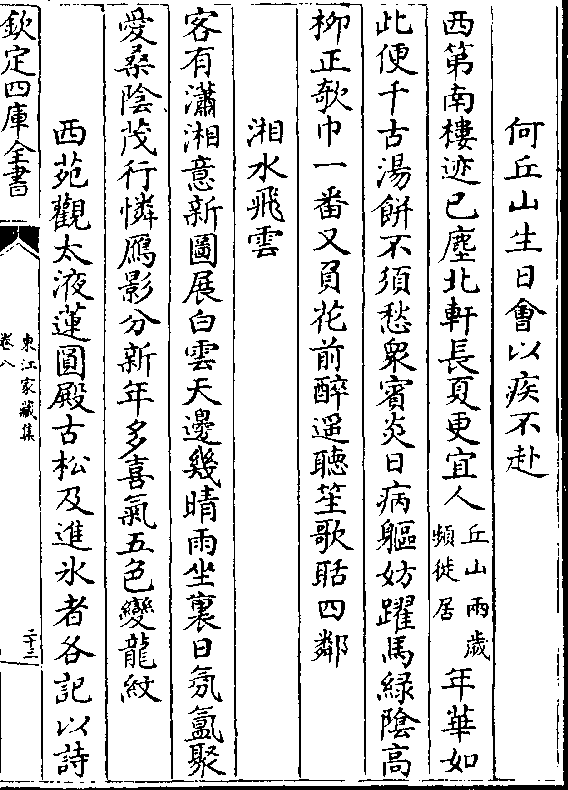 何丘山生日會以疾不赴
西第南樓迹已塵北軒長夏更宜人丘山兩歲頻徙居年華如
此便千古湯餅不須愁衆賓炎日病軀妨躍馬綠陰高
柳正欹巾一番又負花前醉遥聽笙歌聒四鄰
湘水飛雲
客有瀟湘意新圖展白雲天邊幾晴雨坐裏日氛氳聚
愛桑陰茂行憐鴈影分新年多喜氣五色變龍紋
西苑觀太液蓮圓殿古松及進氷者各記以詩
欽定四庫全書
東江家藏集
卷八
二十三